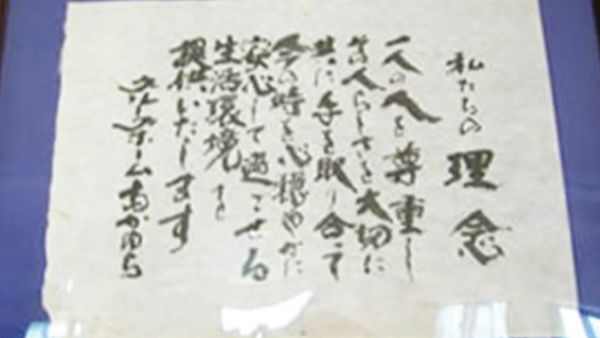 私たちの理念
一人の人を尊重し
その人らしさを大切に
共に手を取り合って
今の時を心穏やかに
安心して過ごせる
生活環境を
提供いたします
グループホームあかゆら